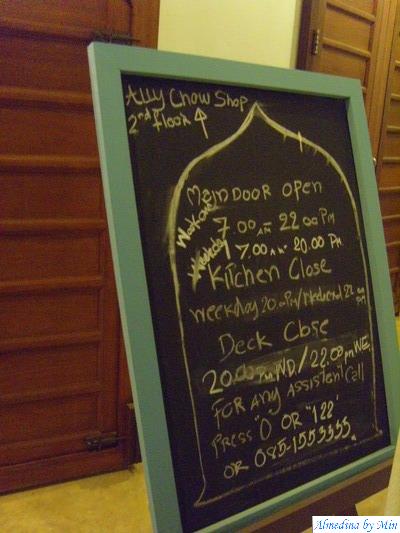 Ally Chow Shop
2nd floor
Main Door open
Weekend 7.00 AM - 22.00 PM
Weekday 7.00 AM - 20.00 PM
Kitchen Close
weekday 20.00 PM / Weekend 22.00 PM
Deck Close
20.00 PM WD / 22.00 PM WE
FOR Any ASSISTENT Call
PRESS "0" OR "122"
OR 085-1553355
Almedina by Min